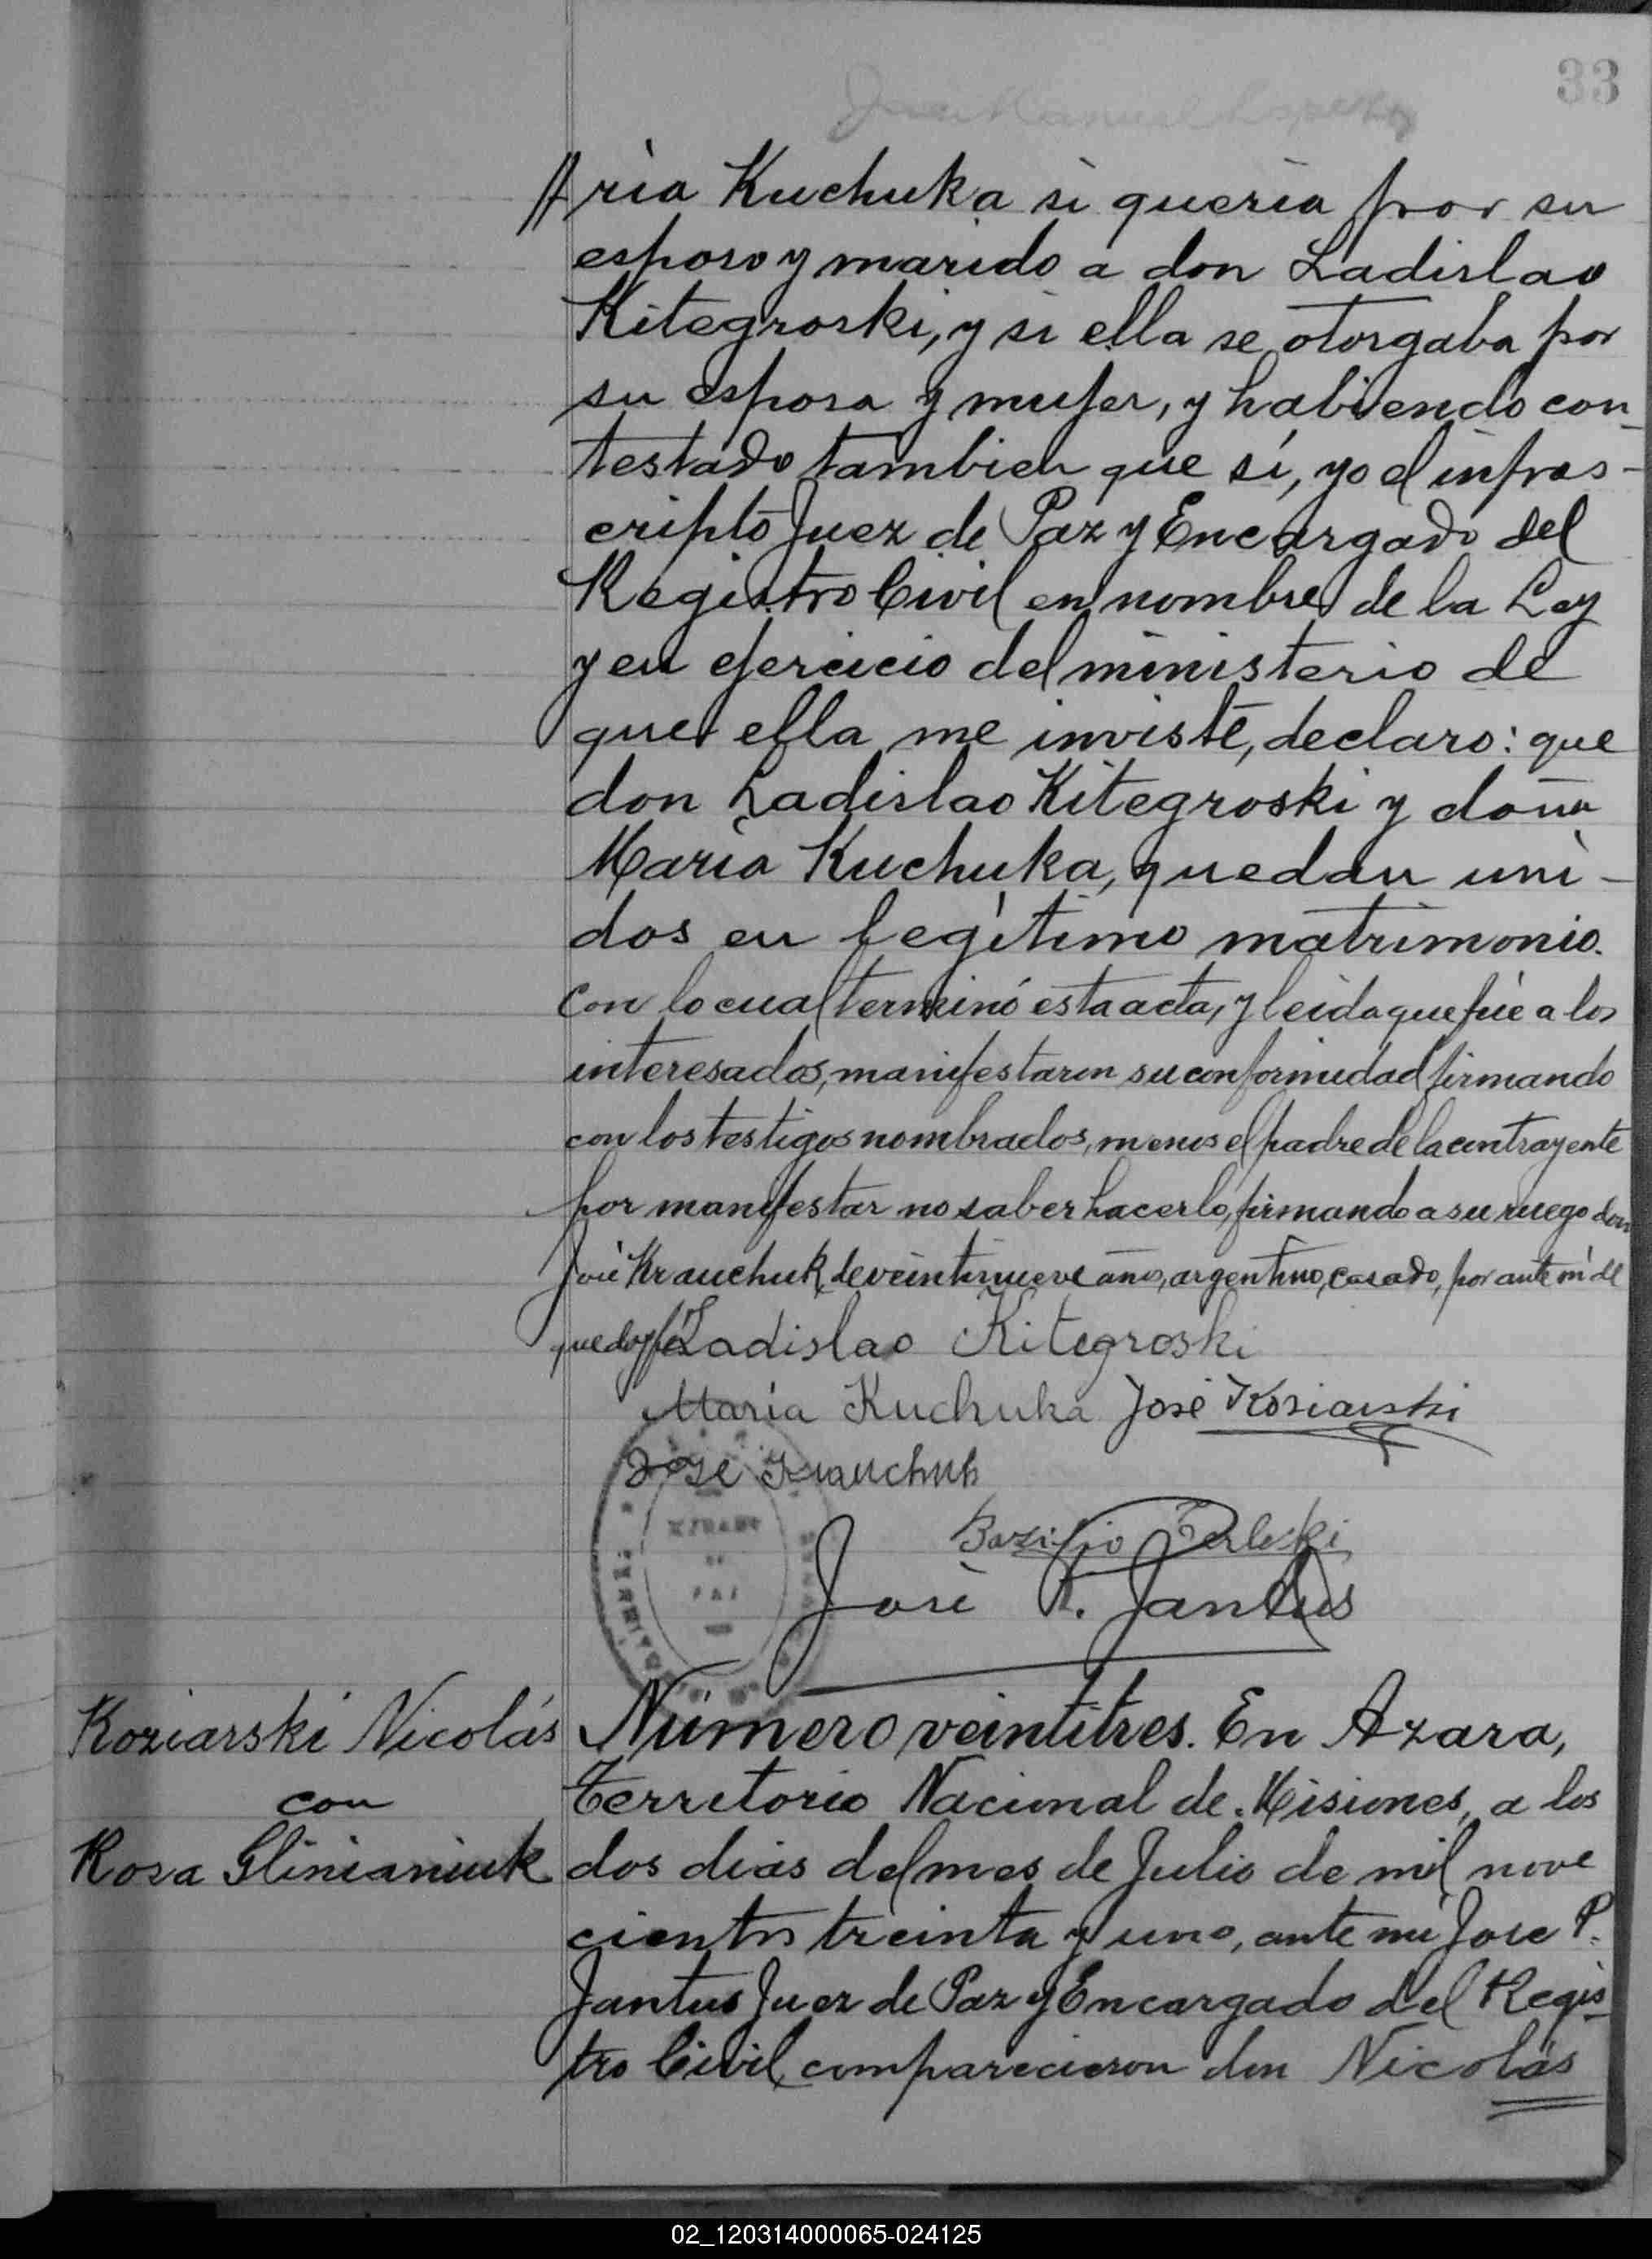 33
//ria Kuchuka si queria por su
esposo y marido a don Ladislao
Kitegroski, y si ella se otorgaba por
su esposa y mujer, y habiendo con_
testado tambien que sí, yo el infras-
cripto Juez de Paz y Encargado del
Registro Civil en nombre de la Ley
y en ejercicio del ministerio de
que ella me inviste, declaro: que
don Ladislao Kitegroski y doña
Maria Kuchuka, quedan uni-
dos en legítimo matrimonio.
Con lo cual terminó esta acta, y leida que fué a los
interesados, manifestaron su conformidad firmando
con los testigos nombrados, menos el padre de la contrayente
por manifestar no saber hacerlo, firmando a su ruego don
José Krauchuk, de veintinueve años, argentino, casado, por ante mí de
que doy fé Ladislao Kitegroski
María Kuchuka José Kosiarski
Jose Krauchuk
Bazilio Terleski
José P. Jantus
Koziarski Nicolás
con
Rosa Glinianiuk
Número veintitres. En Azara,
Territorio Nacional de Misiones, a los
dos dias del mes de Julio de mil nove
cientos treinta y uno, ante mí Jose P.
Jantus Juez de Paz y Encargado del Regis_
tro Civil, comparecieron don Nicolás
02_120314000065-024125